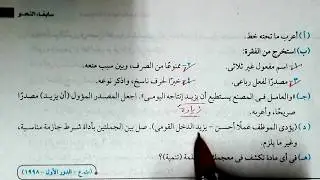 سابعًا: النحو
(أ) أعرب ما تحته خط.
(ب) استخرج من الفقرة:
١- اسم مفعول غير ثلاثى. ٢- ممنوعًا من الصرف، وبين سبب منعه.
٣- مصدرًا لفعل رباعى. ٤- خبرًا لحرف ناسخ، واذكر نوعه.
(جـ) «والعامل فى المصنع يستطيع أن يزيد إنتاجه اليومى». اجعل المصدر المؤول (أن يزيد) مصدرًا
صريحًا، وأعربه. زيادة
(د) (يؤدى الموظف عملًا أحسن - يزيد الدخل القومى). صل بين الجملتين بأداة شرط جازمة مناسبة،
وغير ما يلزم.
(هـ) فى أى مادة تكشف فى معجمك عن كلمة (تنمية)؟
(ث.ع - الدور الأول - ١٩٩٨)